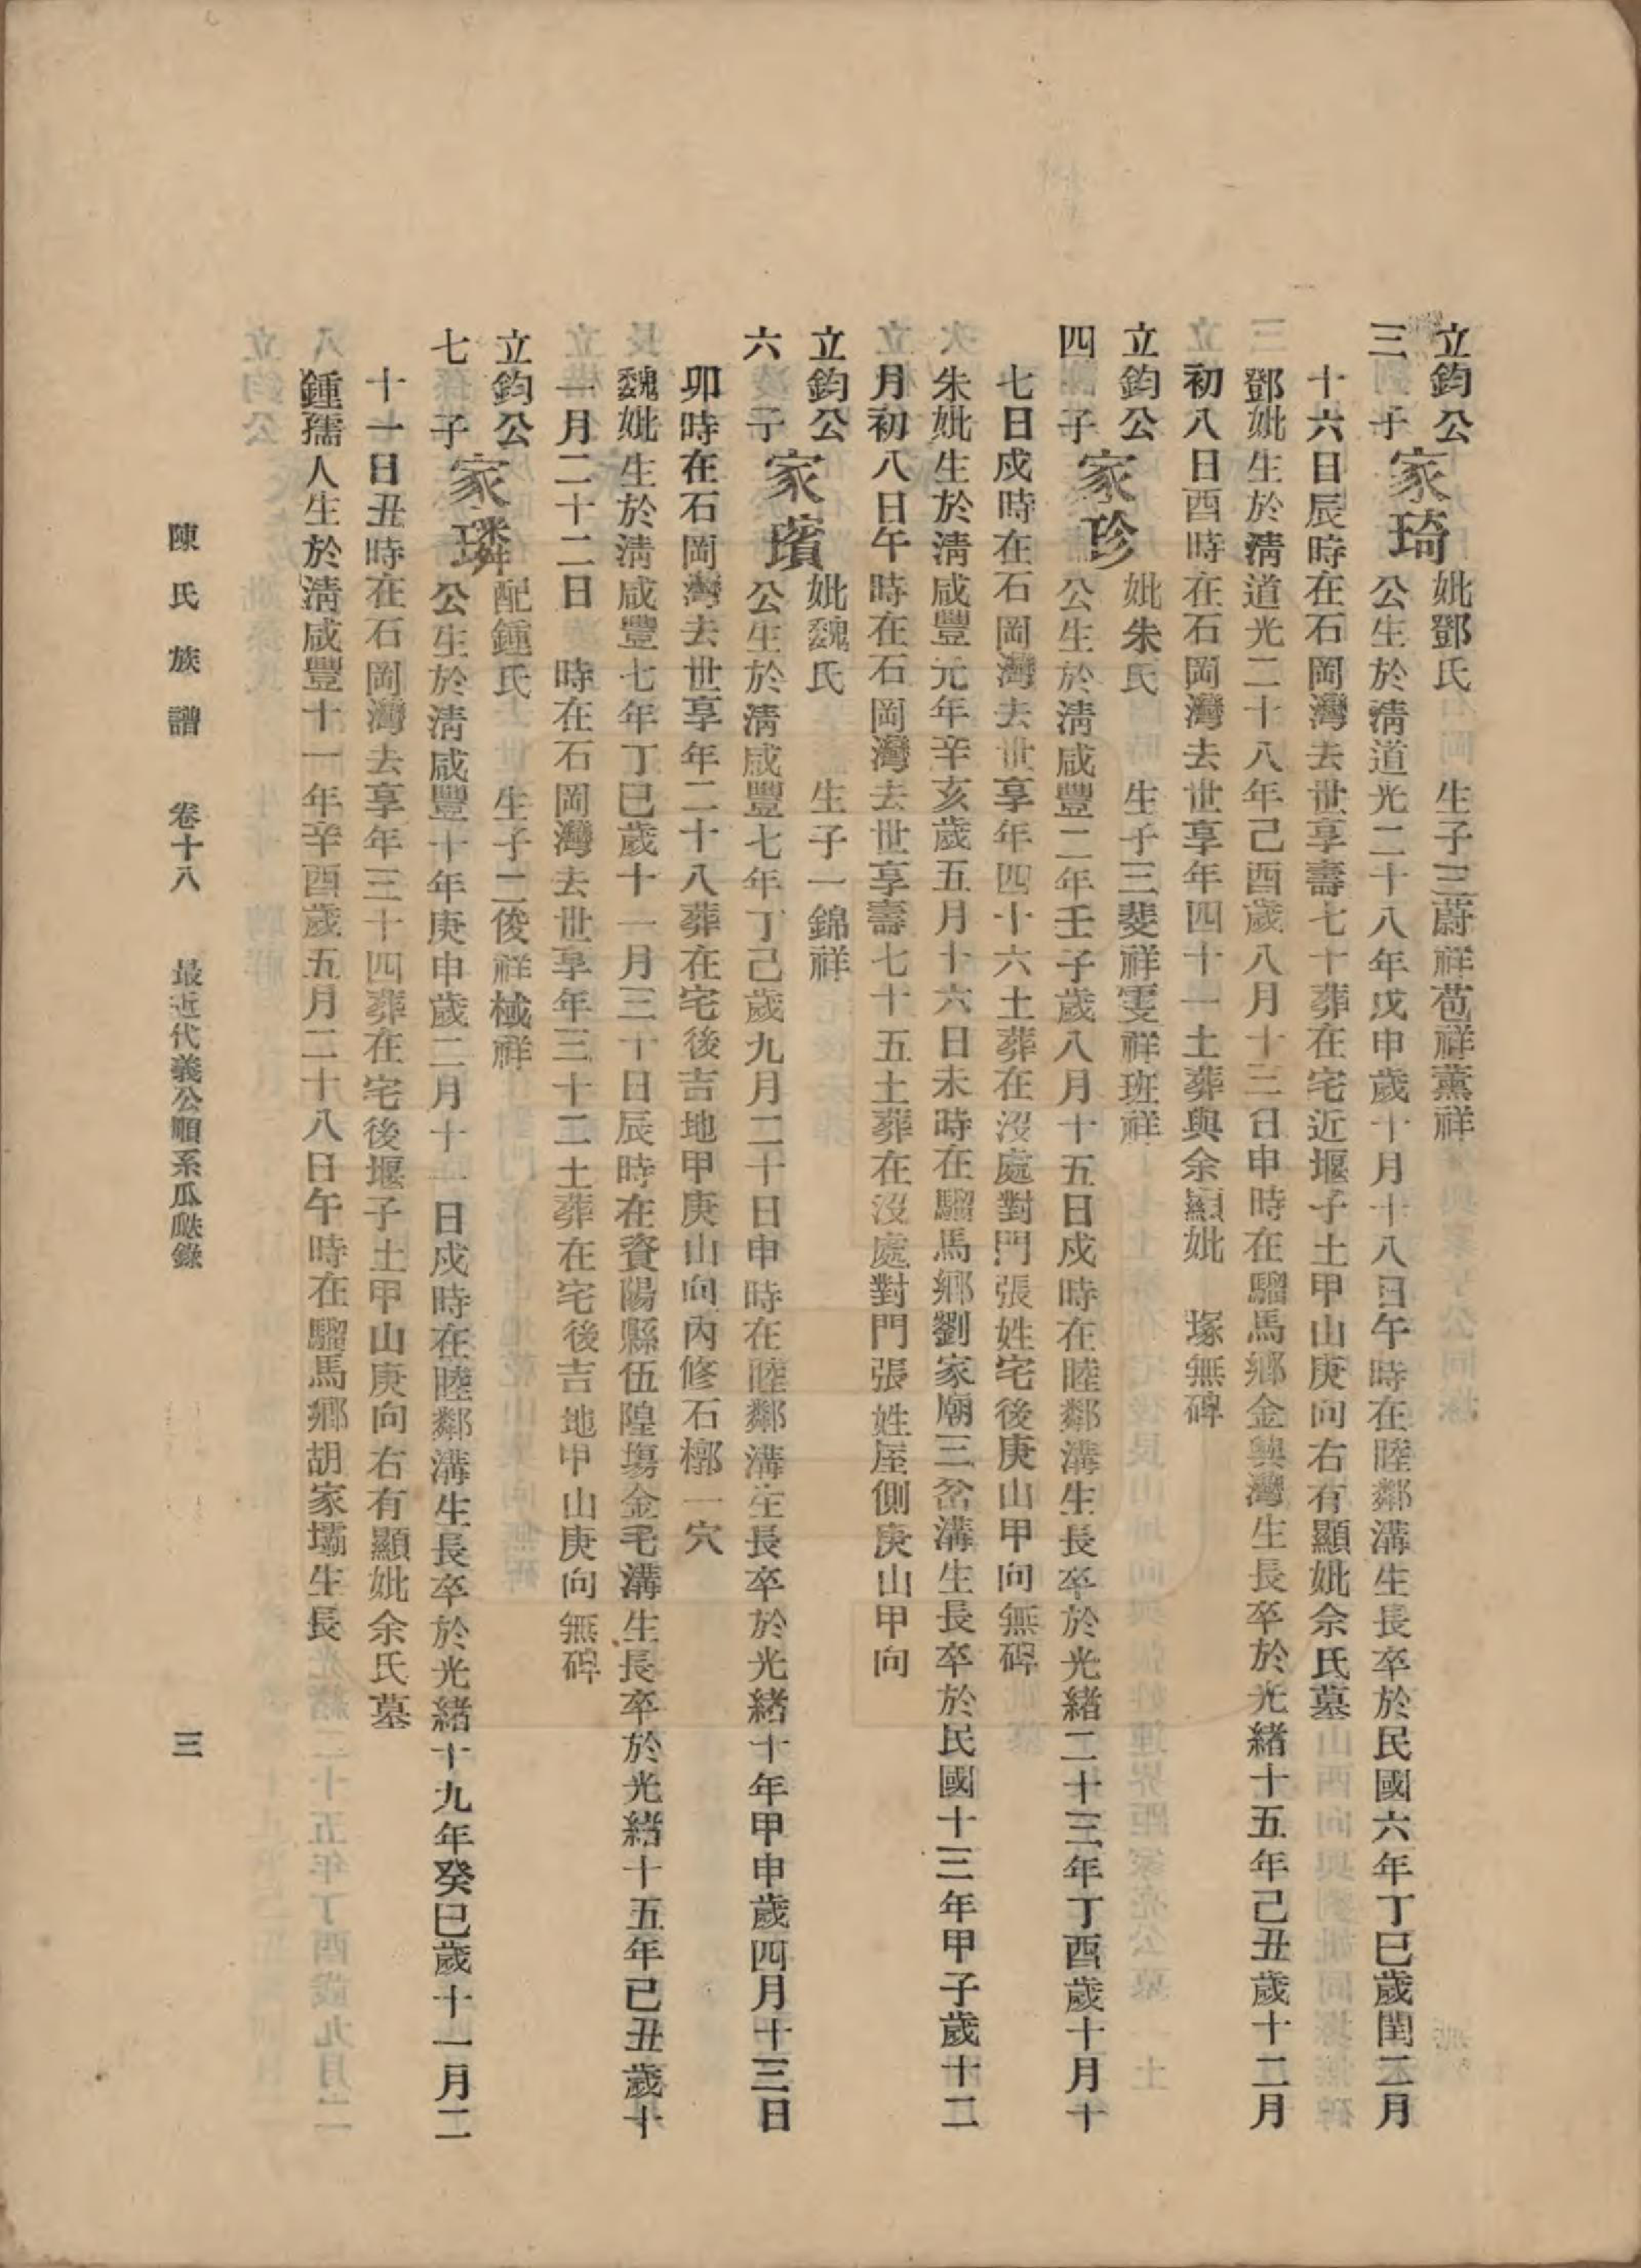 立鈞公 妣鄧氏 生子三蔚祥苞祥薰祥
三子家琦公生於清道光二十八年戊申歲十月十八日午時在睦鄰溝生長卒於民國六年丁巳歲閏二月
十六日辰時在石岡灣去世享壽七十葬在宅近堰子土甲山庚向右有顯妣余氏墓
鄧妣生於清道光二十八年己酉歲八月十三日申時在騮馬鄉金興灣生長卒於光緒十五年己丑歲十二月
初八日酉時在石岡灣去世享年四十一土葬與余顯妣 塚無碑
立鈞公 妣朱氏 生子三斐祥雯祥班祥
四子家珍公生於清咸豐二年壬子歲八月十五日戍時在睦鄰溝生長卒於光緒二十三年丁酉歲十月十
七日戍時在石岡灣去世享年四十六土葬在沒處對門張姓宅後庚山甲向無碑
朱妣生於清咸豐元年辛亥歲五月十六日未時在騮馬鄉劉家廟三岔溝生長卒於民國十三年甲子歲十二
月初八日午時在石岡灣去世享壽七十五土葬在沒處對門張姓屋側庚山甲向
立鈞公 妣魏氏 生子一錦祥
六子家璸公生於清咸豐七年丁己歲九月二十日申時在睦鄰溝生長卒於光緒十年甲申歲四月十三日
卯時在石岡灣去世享年二十八葬在宅後吉地甲庚山向內修石槨一穴
魏妣生於清咸豐七年丁巳歲十一月三十日辰時在資陽縣伍隍場金毛溝生長卒於光緒十五年已丑歲十
一月二十二日 時在石岡灣去世享年三十二土葬在宅後吉地甲山庚向無碑
立鈞公 配鍾氏 生子二俊祥棫祥
七子家璘公生於清咸豐十年庚申歲二月十一日戍時在睦鄰溝生長卒於光緒十九年癸巳歲十一月二
十一日丑時在石岡灣去享年三十四葬在宅後堰子土甲山庚向右有顯妣余氏墓
鍾孺人生於清咸豐十一年辛酉歲五月二十八日午時在騮馬鄉胡家壩生長
陳氏族譜 卷十八 最近代義公順系瓜瓞錄 三